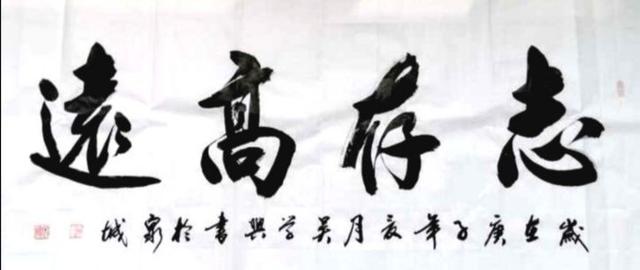 志存高遠
歲在庚子年夏月吴学興書於泉城